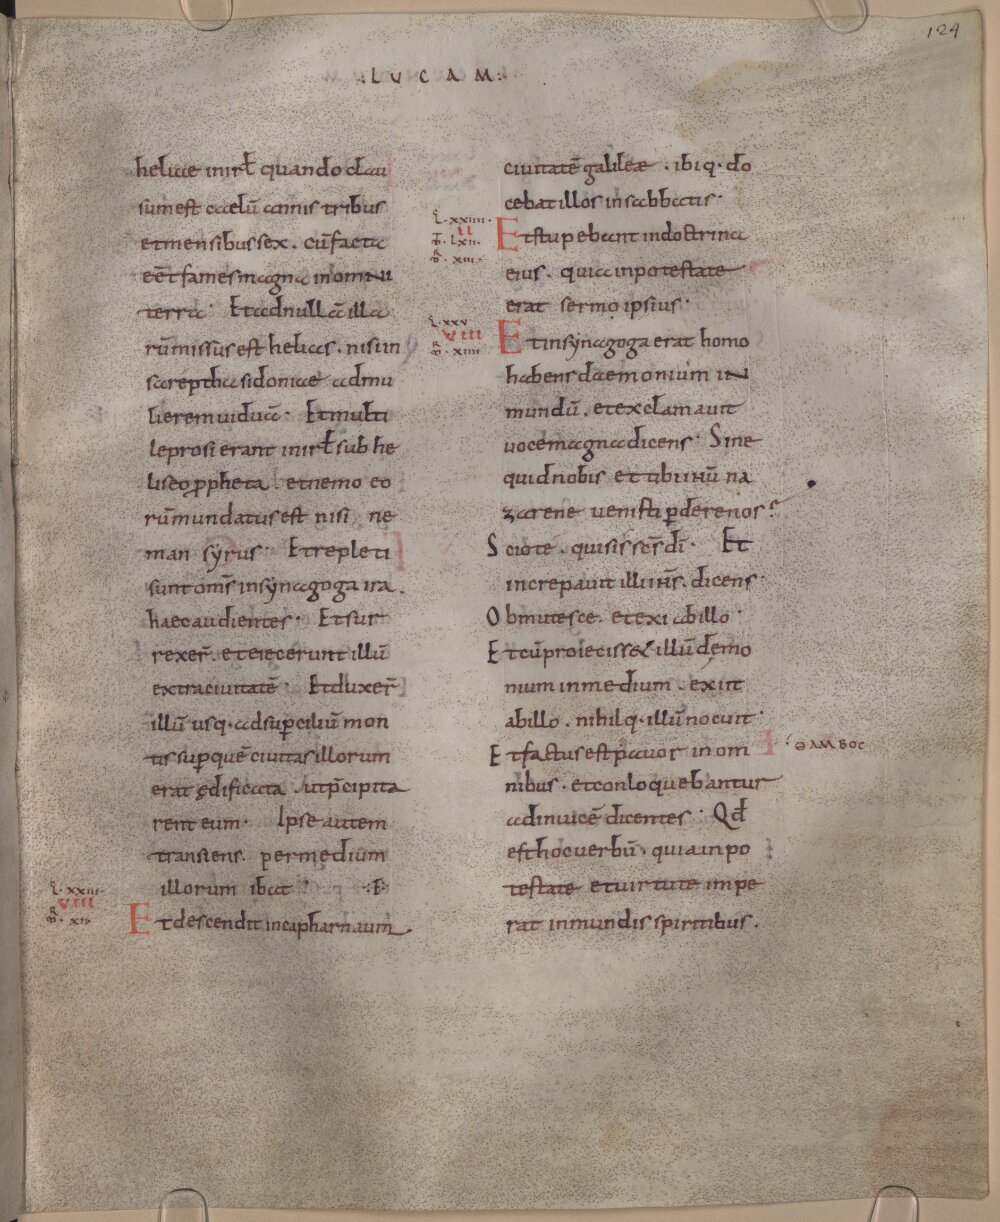 124
LUCAM
heliae inisrł quando clau
sum est caelū annis tribus
et mensibus sex. cū facta
eēt fames magna in omni
terra· Et ad nullā illa
rū missus est helias. nisi in
sareptha sidoniae ad mu
lierem viduā· Et multi
leprosi erant inisrł sub he
liseo ꝓpheta. et nemo eo
rū mundatus est nisi ne
man syrus· Et repleti
sunt om̄s in synagoga ira.
haec audientes· Et sur
rexer̄. et eiecerunt illū
extra civitatē· Et duxer̄
illū usq· ad suꝑcilium mon
tis suꝑ quē civitas illorum
erat ędificata ut p̄cipita
rent eum· Ipse autem
transiens. per medium
illorum ibat·
L·xxiii·
VIII
Et descendit in capharnaum
civitatē galileae. ibiq· do
cebat illos in sabbatis·
L·xxiiii·
II
T·LXII·
R·XIII·
Et stupebant in doctrina
eius. quia in potestate
erat sermo ipsius·
L·xxv
VIII
R·XIIII
Et in synagoga erat homo
habens daemonium in
mundū. et exclamavit
voce magna dicens· Sine
quid nobis et tibi ihū na
zarene venisti ꝑdere nos?
Scio te. qui sis scs dī· Et
increpavit illi ihs. dicens·
Obmutesce. et exi ab illo·
Et cū proiecisset illū demo
nium in medium. exiit
ab illo. nihilq· illū nocuit·
Et factus est pavor in om
ΘΑΜΒΟC
nibus. et conloquebantur
ad invicē dicentes· Qđ
est hoc verbū. quia in po
testate et virtute impe
rat inmundis spiritibus.